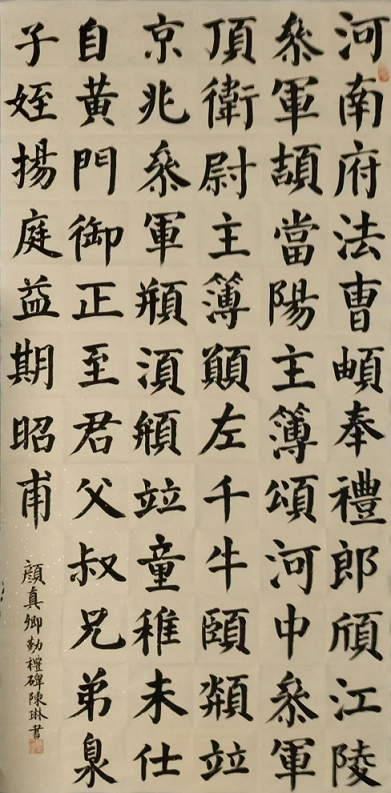 河南府法曹頔奉禮郎頎江陵
叅軍頡當陽主簿頌河中叅軍
頂衛尉主簿願左千牛頤竝
京兆叅軍須竝童稚未仕
自黃門御正至君父叔兄弟臮
子姪揚庭益期昭甫
顏真卿勤禮碑陳琳書